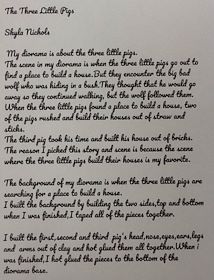 The Three Little Pigs
Skyla Nichols
My diorama is about the three little pigs.
The scene in my diorama is when the three little pigs go out to
find a place to build a house.But they encounter the big bad
wolf who was hiding in a bush.They thought that he would go
away so they continued walking, but the wolf followed them.
When the three little pigs found a place to build a house, two
of the pigs rushed and build their houses out of straw and
sticks.
The third pig took his time and built his house out of bricks.
The reason I picked this story and scene is because the scene
where the three little pigs build their houses is my favorite.
The background of my diorama is when the three little pigs are
searching for a place to build a house.
I built the background by building the two sides,top and bottom
when I was finished,I taped all of the pieces together.
I built the first,second and third pig's head,nose,eyes,ears,legs
and arms out of clay and hot glued them all together.When i
was finished,I hot glued the pieces to the bottom of the
diorama base.